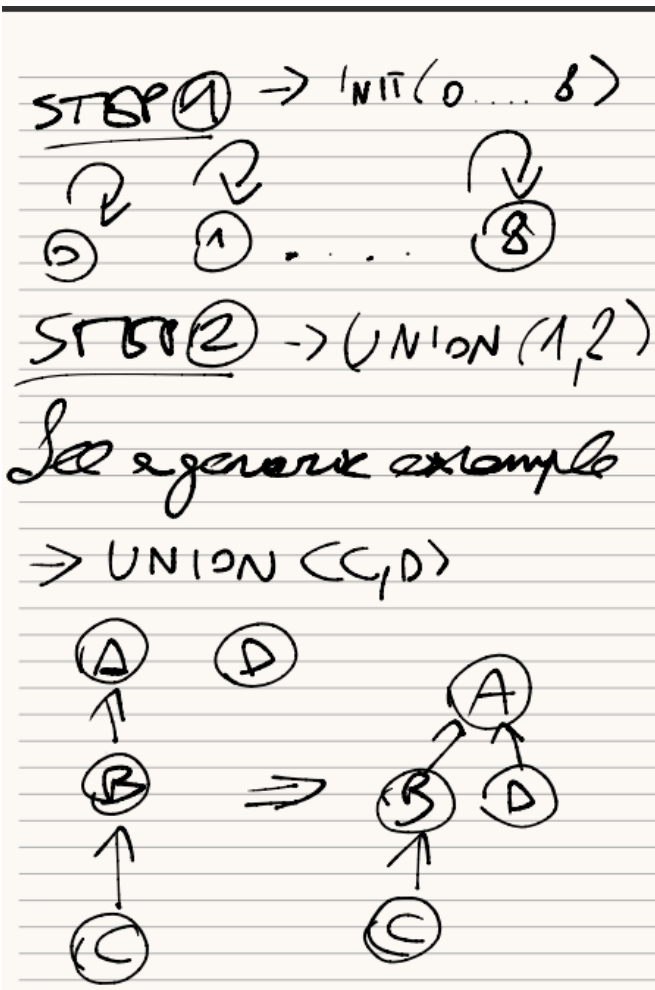 STEP 1 → INIT(0 .... 8)
0 1 . . . . 8
STEP 2 → UNION(1,2)
See a generic example
→ UNION(C,D)
A D A
B ⇒ B D
C C